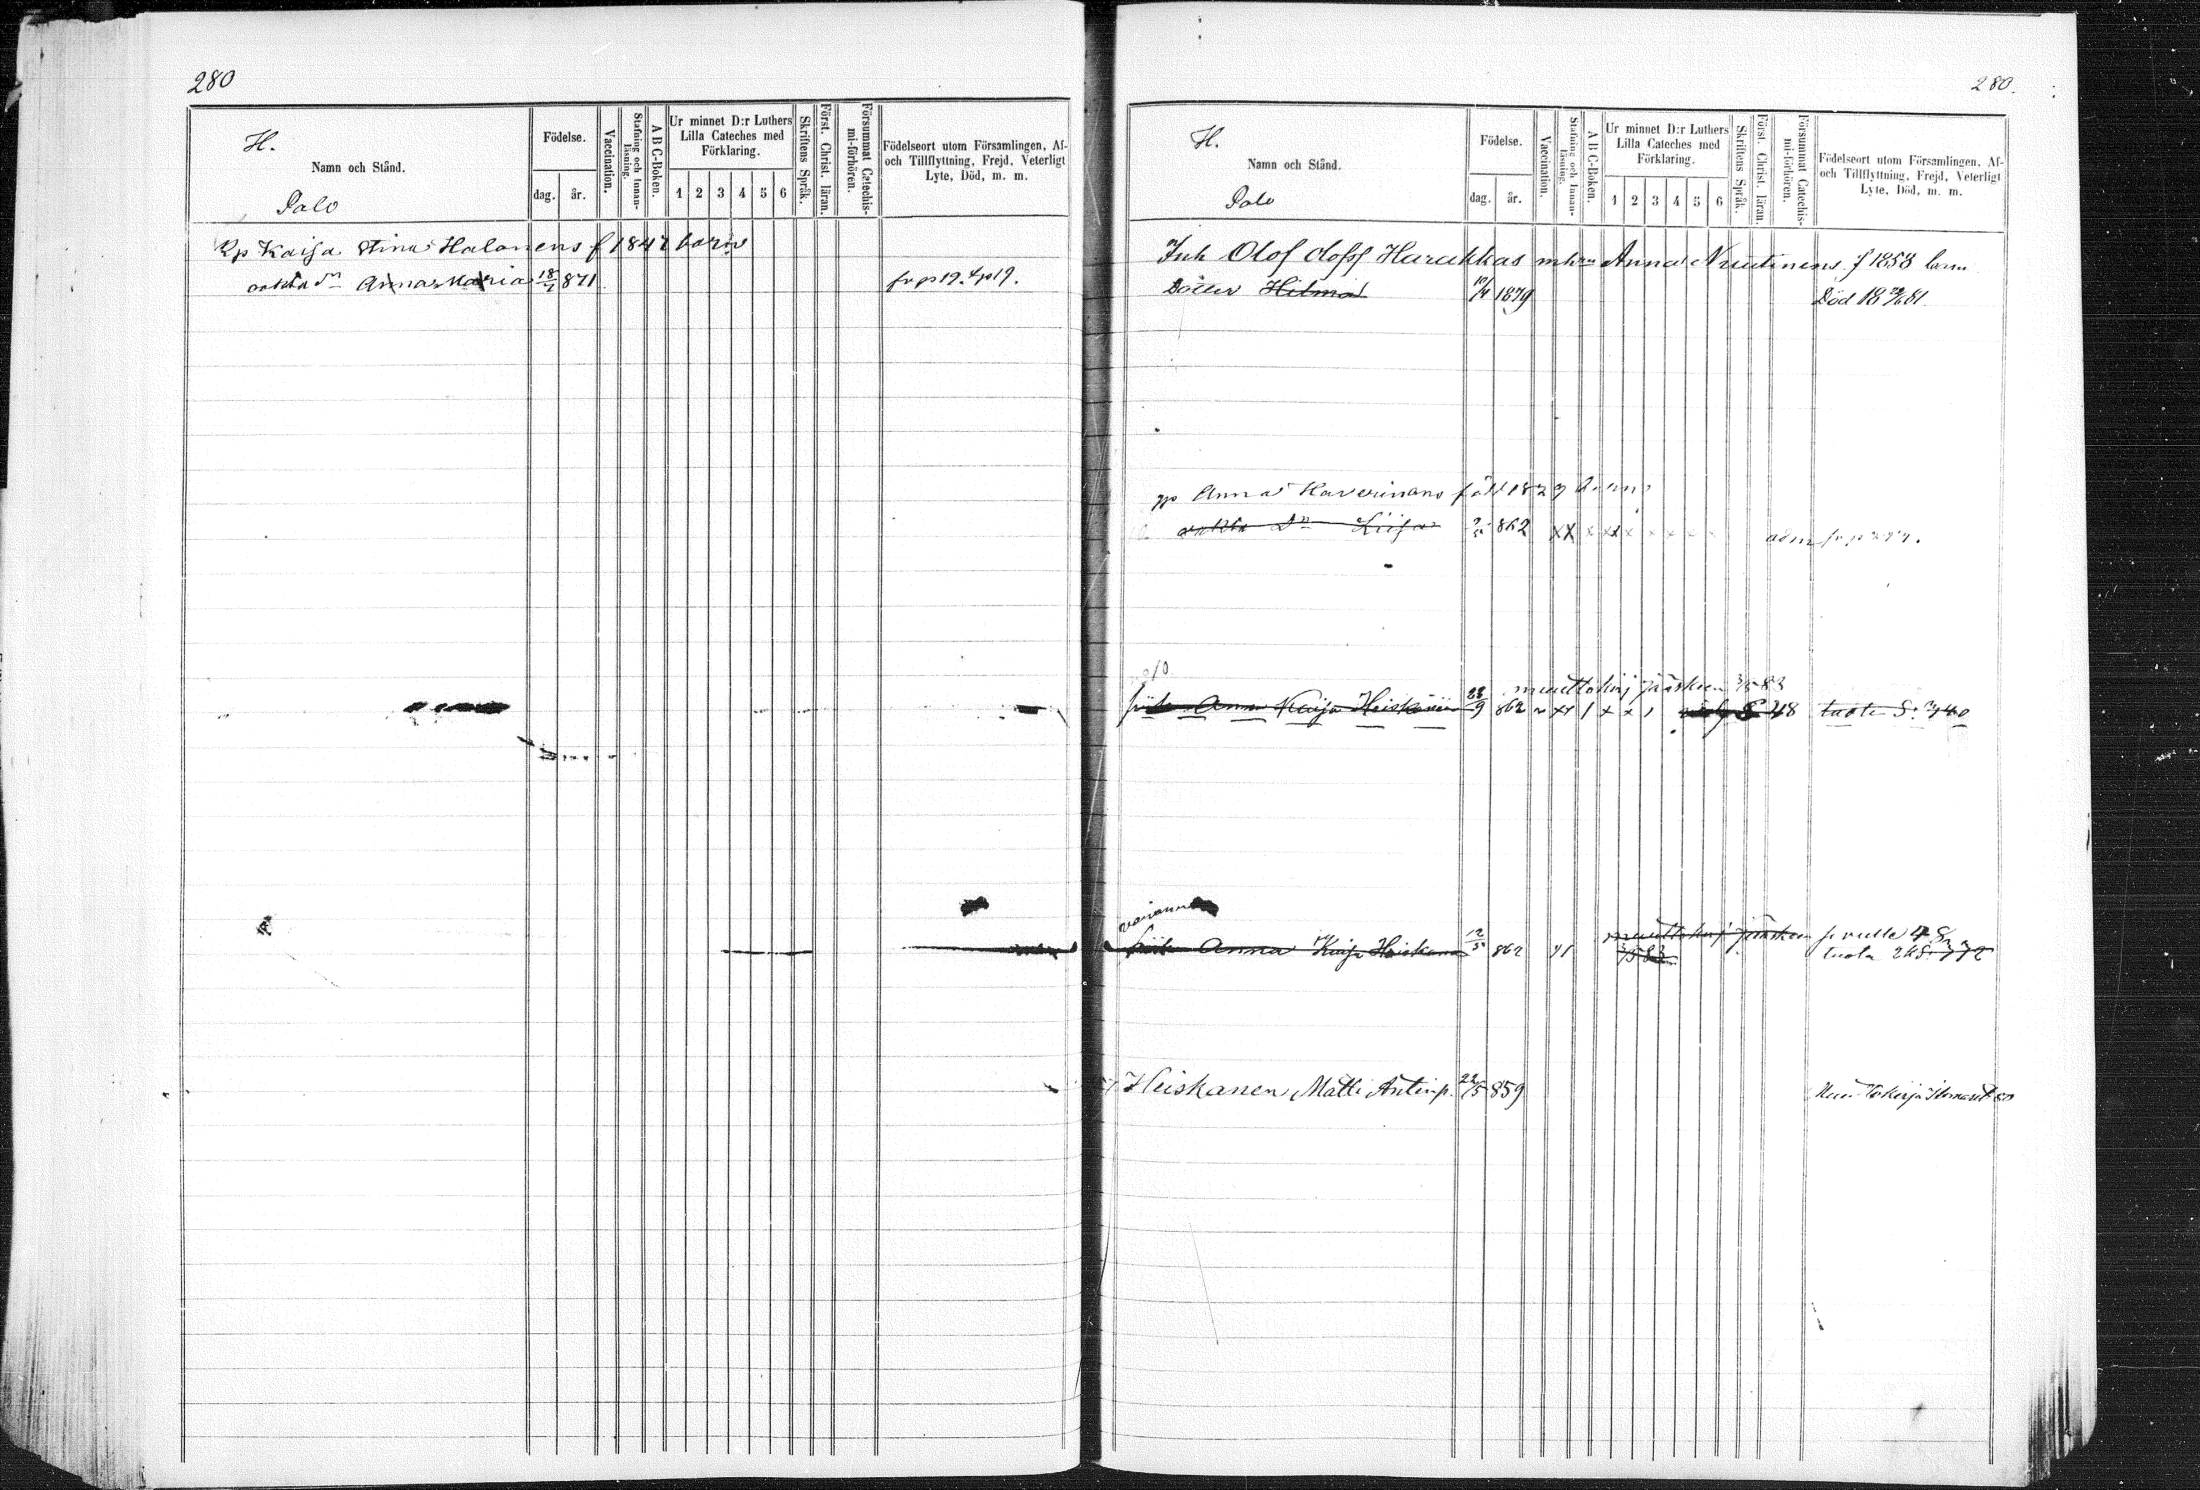 280
H.
Namn och Stånd.
Palo
Födelse.
dag. år.
Vaccination.
Stafning och Innanläsning.
A B C-Boken.
Ur minnet D:r Luthers
Lilla Cateches med
Förklaring.
1 2 3 4 5 6
Skriftens Språk.
Först. Christ. läran.
Försummat Catechismi-förhören.
Födelseort utom Församlingen, Af-
och Tillflyttning, Frejd, Veterligt
Lyte, Död, m. m.
Kaisa Stina Halonens f 1842 barn
oakta dn Anna Maria 18/7 871
280.
H.
Namn och Stånd.
Palo
Födelse.
dag. år.
Vaccination.
Stafning och Innanläsning.
A B C-Boken.
Ur minnet D:r Luthers
Lilla Cateches med
Förklaring.
1 2 3 4 5 6
Skriftens Språk.
Först. Christ. läran.
Försummat Catechismi-förhören.
Födelseort utom Församlingen, Af-
och Tillflyttning, Frejd, Veterligt
Lyte, Död, m. m.
Inh Olof Olofss Harakkas m hru Anna Nuutinens f 1858 barn
Dotter Hilma 1879 Död
Anna Kaverinans född 1829 barn
oakta Dn Liisa 862 xx x xx x x x x x adm
muuttokirj Jääskeen 3/5 83
Anna Kaisa Heiskanen 28/9 862 48
muuttokirj Jääskeen
Anna Kaisa Heiskanen 12/5 862 3/5 83
Heiskanen, Matti Antinp. 22/5 859 80